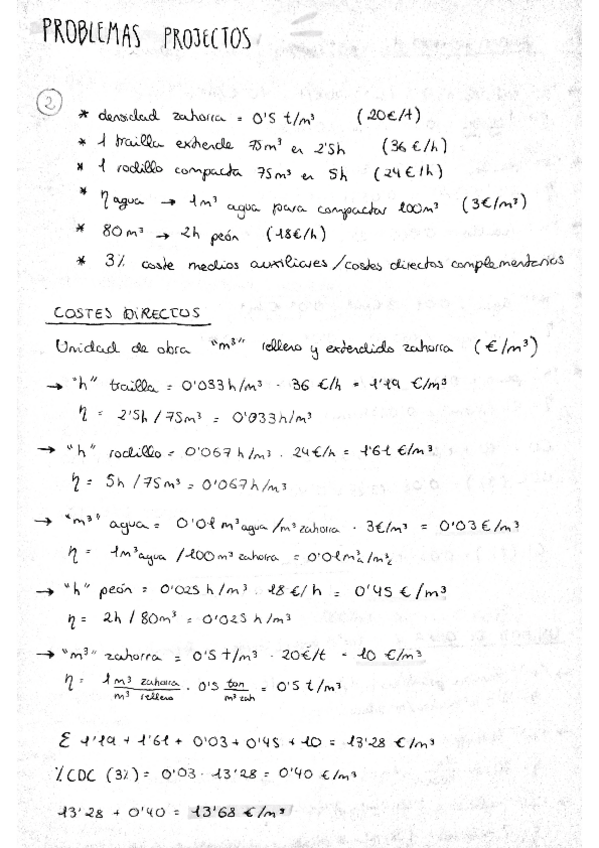 PROBLEMAS PROJECTOS
2
* densidad zahorra = 0'5 t/m³ (20€/t)
* 1 trailla extiende 75m³ en 2'5h (36 €/h)
* 1 rodillo compacta 75m³ en 5h (24€/h)
* η agua → 1m³ agua para compactar 100m³ (3€/m³)
* 80m³ → 2h peón (18€/h)
* 3% coste medios auxiliares/costes directos complementarios
COSTES DIRECTOS
Unidad de obra "m³" relleno y extendido zahorra (€/m³)
→ "h" trailla = 0'033h/m³ · 36 €/h = 1'19 €/m³
η = 2'5h / 75m³ = 0'033h/m³
→ "h" rodillo = 0'067 h/m³ · 24€/h = 1'61 €/m³
η = 5h / 75m³ = 0'067h/m³
→ "m³" agua = 0'01 m³agua/m³zahorra · 3€/m³ = 0'03€/m³
η = 1m³agua /100m³ zahorra = 0'01m³a/m³z
→ "h" peón = 0'025 h/m³ · 18 €/h = 0'45 €/m³
η = 2h / 80m³ = 0'025 h/m³
→ "m³" zahorra = 0'5 t/m³ · 20€/t = 10 €/m³
η = 1 m³ zahorra / m³ relleno · 0'5 ton / m³ zah = 0'5 t/m³
Σ 1'19 + 1'61 + 0'03 + 0'45 + 10 = 13'28 €/m³
% CDC (3%) = 0'03 · 13'28 = 0'40 €/m³
13'28 + 0'40 = 13'68 €/m³